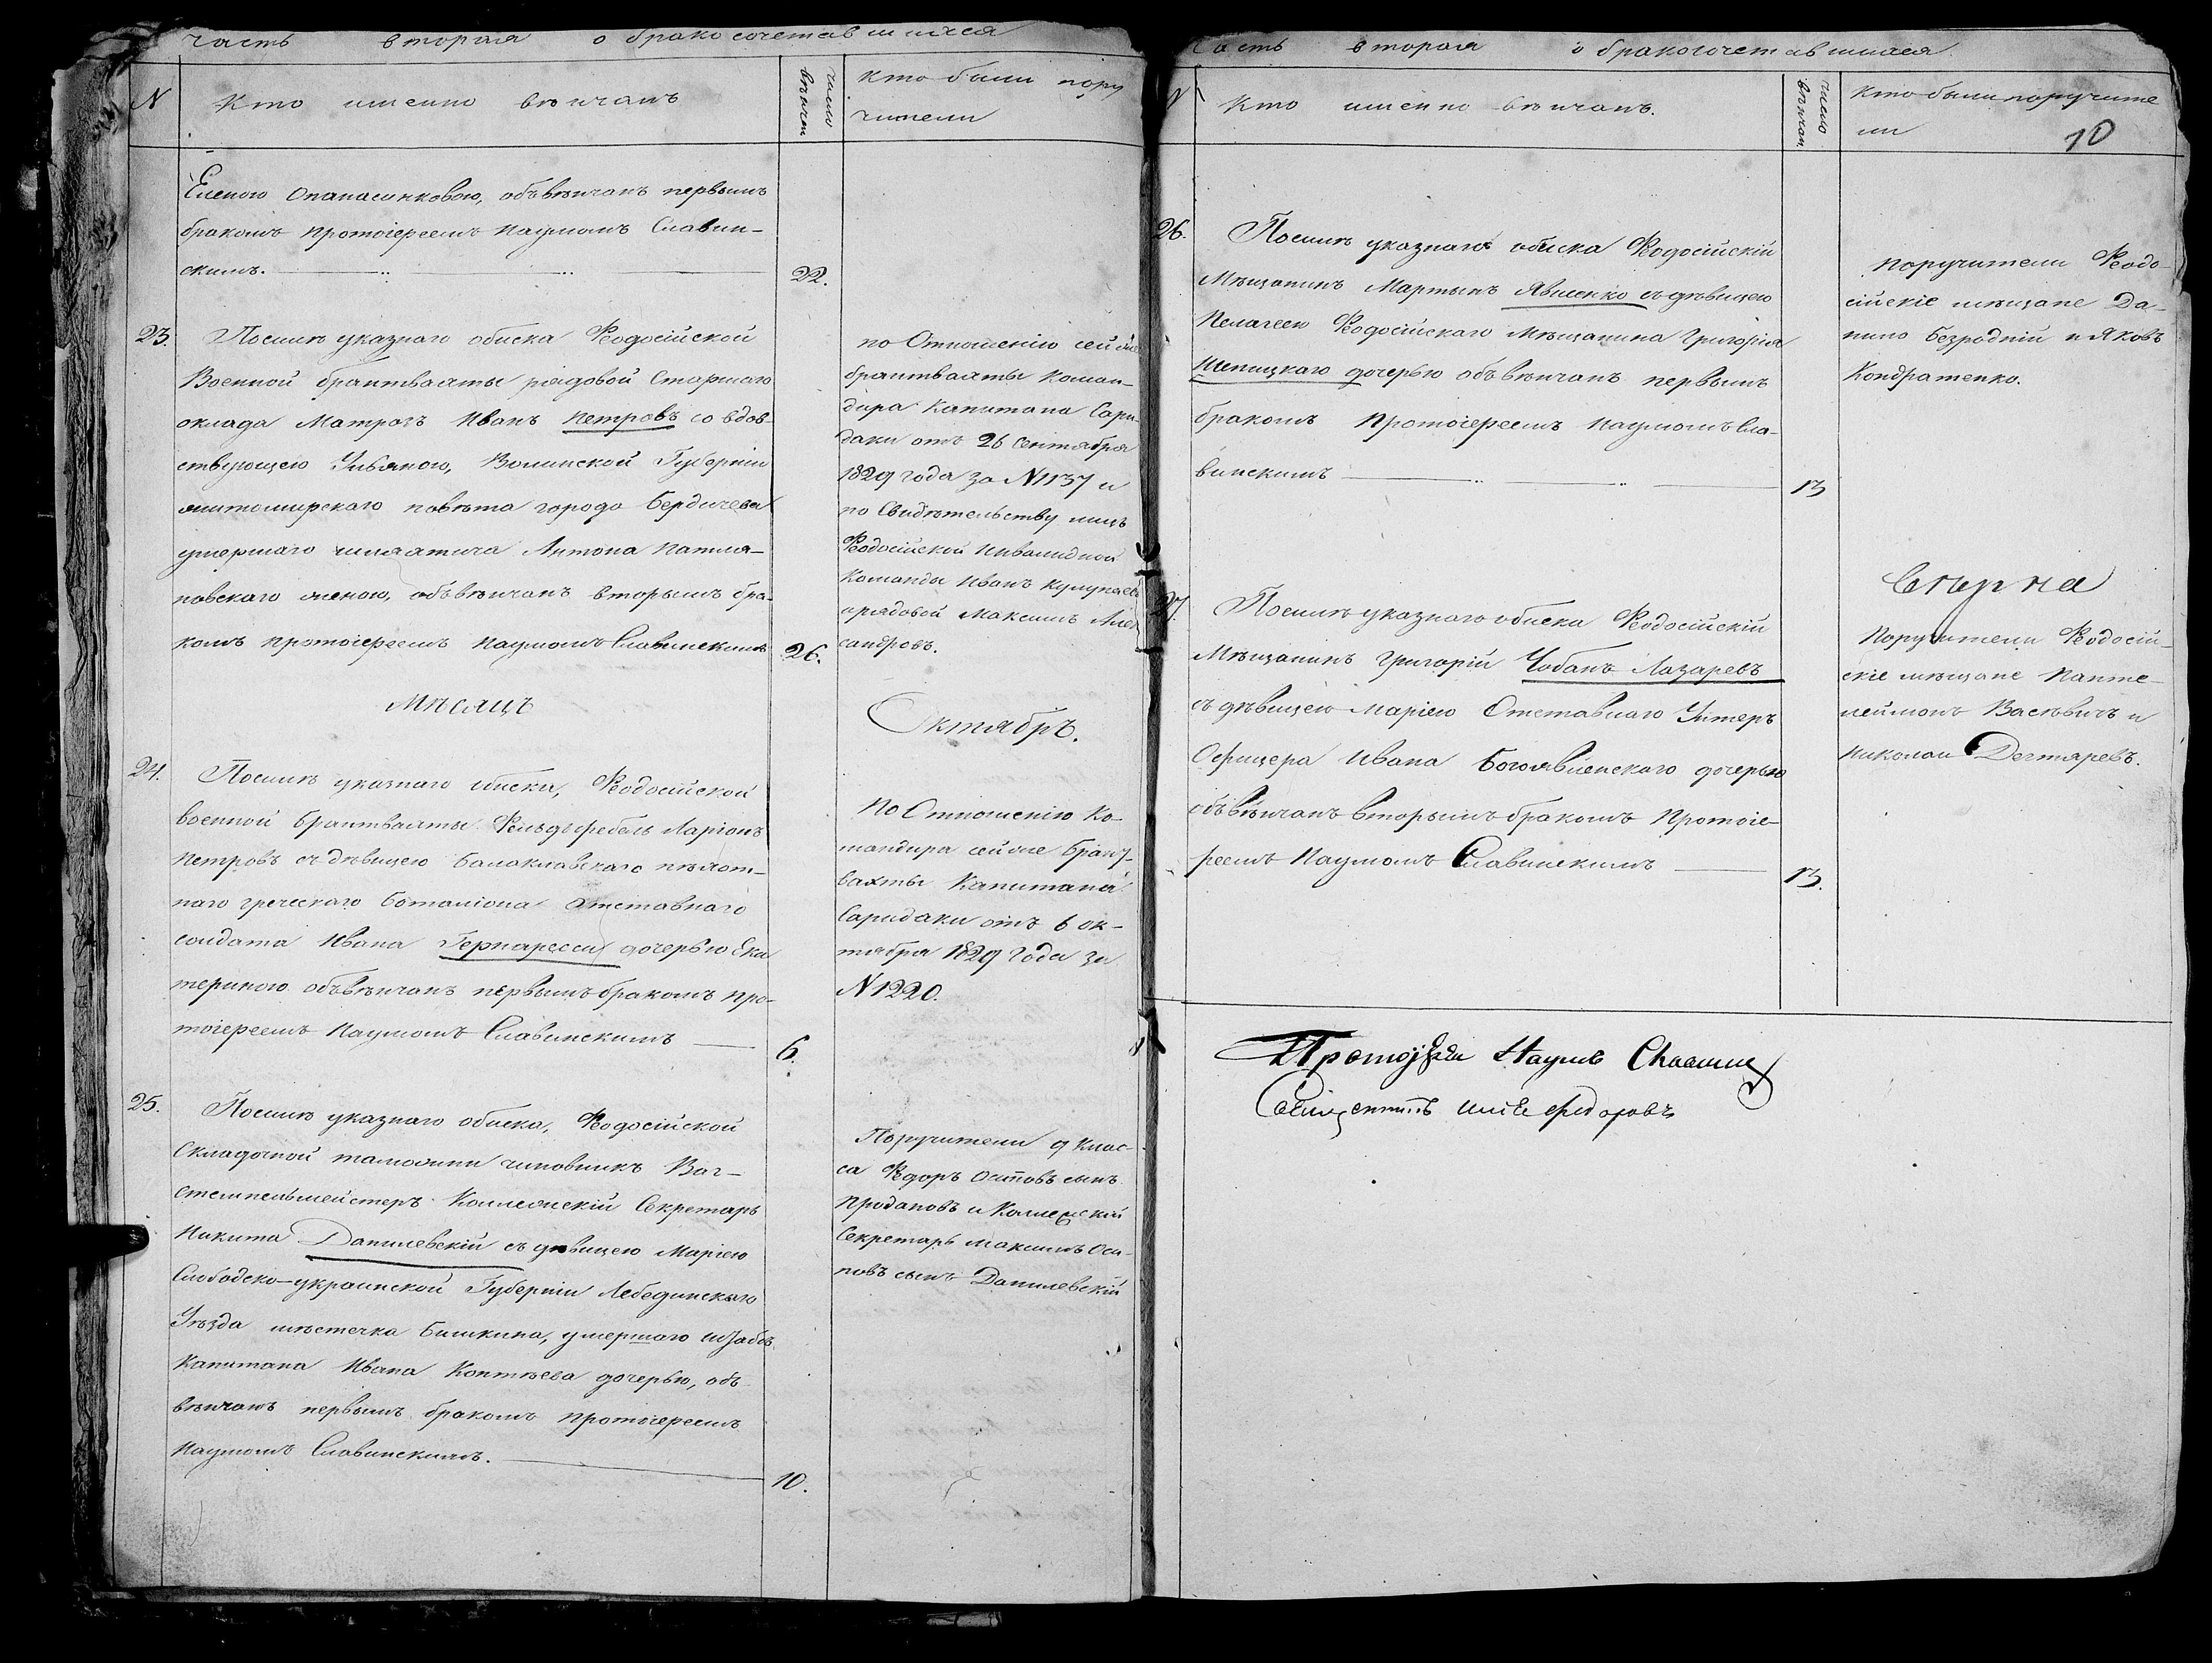 часть вторая о бракосочетавшихся
N
Кто именно венчанъ
число венчан
кто были пору
чители
Еленою Опанасенковою, обвѣнчанъ первымъ
бракомъ протоіереемъ Наумомъ Славин–
скимъ.
22.
23.
Послѣ указнаго обиска Феодосійской
Военной брантвахты рядовой Старшаго
оклада Матрозъ Иванъ Петровъ со вдов–
ствующею Ульяною, Волинской Губерніи
житомирскаго повѣта города Бердичева
умершаго шляхтича Антона
новскаго женою, обвѣнчан вторымъ бра–
комъ протоіереемъ Наумомъ Славинскимъ
26.
по Отношенію сей же
брантвахты Коман–
дира Капитана Сари–
даки отъ 26 Сентября
1829 года за N 1137 и
по Свидѣтельству лицъ
Феодосійской Инвалидной
Команды Иванъ
и рядовой Максимъ Алек
сандровъ.
Мѣсяцъ
Октябрь.
24.
Послѣ указнаго обиска, Феодосійской
военной брантвахты Фельдфебель Ларіонъ
Петровъ съ дѣвицею Балаклавскаго пѣхот–
наго греческаго баталіона отставнаго
солдата Ивана дочерью Ека
териною обвѣнчанъ первымъ бракомъ про–
тоіереемъ Наумомъ Славинскимъ
6.
По Отношенію Ко–
мандира сей же Бранд–
вахты Капитана
Саридаки отъ 6 ок–
тября 1829 года за
N 1220.
25.
Послѣ указнаго обиска, Феодосійской
Складочной таможни чиновникъ Ваг–
штемпельмейстеръ Коллежскій Секретарь
Никита Данилевскій съ дѣвицею Маріею
Слободско–украинской Губерніи Лебединскаго
Уѣзда мѣстечка Бишкина, умершаго штабсъ
Капитана Ивана Коптѣева дочерью, об
вѣнчанъ первымъ бракомъ протоіереемъ
Наумомъ Славинскимъ.
10.
Поручители 9 Клас–
са Федоръ Осиповъ сынъ
Продановъ и Коллежскій
Секретарь Максимъ Оси–
повъ сынъ Данилевскій
часть вторая о бракосочетавшихся
N
Кто именно венчанъ.
число венчан
Кто были поручите
ли
10
26.
Послѣ указнаго обиска Феодосійскій
Мѣщанинъ Мартынъ Явленко съ дѣвицею
Пелагеею Феодосійскаго Мѣщанина Григорія
Шепицкаго дочерью обвѣнчанъ первымъ
бракомъ Протоіереемъ Наумомъ Сла–
винскимъ
13
Поручители Феодо–
сійскіе мѣщане Да–
нило Безродній и Яковъ
Кондратенко.
27.
Послѣ указнаго обиска Феодосійскій
Мѣщанинъ Григорій Чобанъ Лазаревъ
съ дѣвицею Маріею Отставнаго Унтеръ
Офицера Ивана Богоявленскаго дочерью
обвѣнчанъ вторымъ бракомъ Протоіе–
реемъ Наумомъ Славинскимъ
13.
Поручители Феодосій–
скіе мѣщане Панте–
леймонъ Васѣвичъ и
Николай Дегтяревъ.
Протоіерей Наумъ Славинск
Священникъ Илія Федоровъ